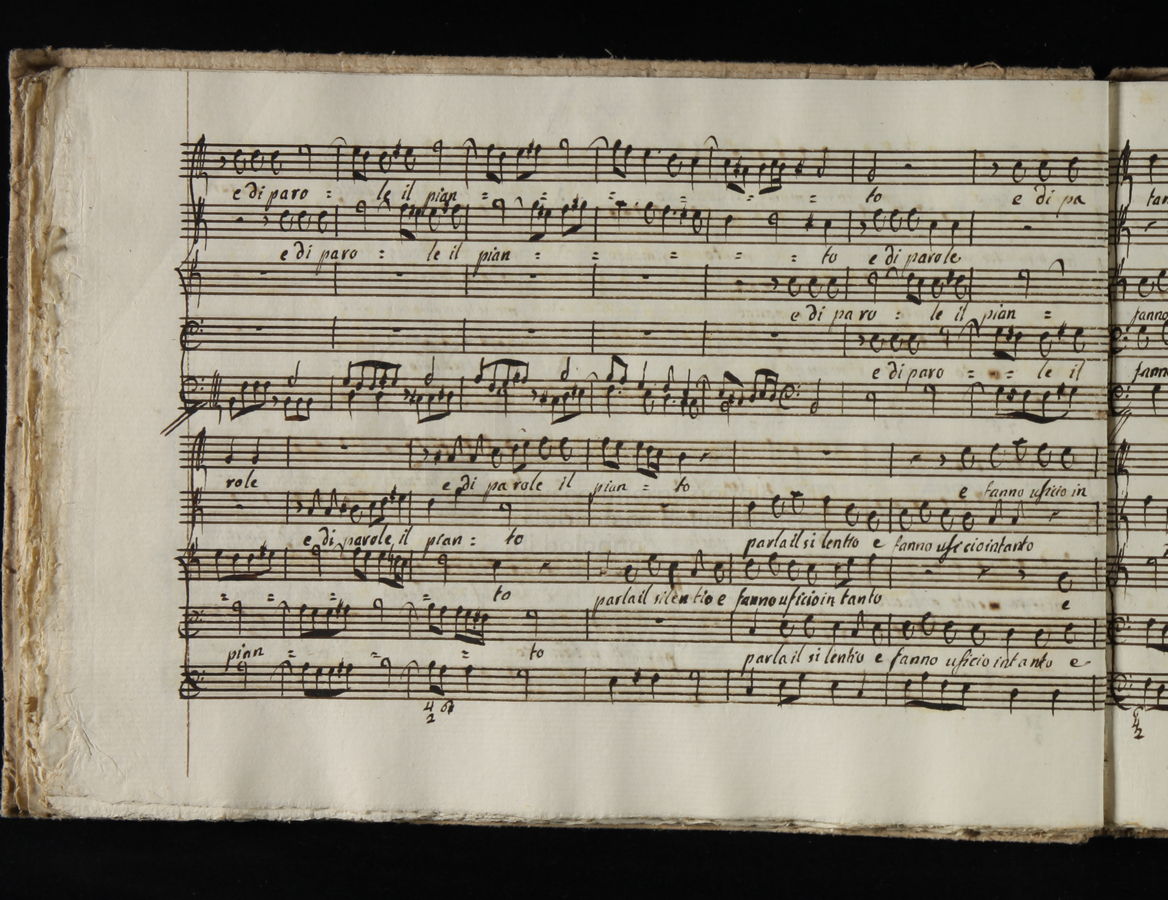 e di paro : le il pian = = = = = = to e di pa
e di paro : le il pian = = = = = to e di parole
e di paro : le il pian =
e di paro = = le il
role e di parole il pian = to e fanno uficio in
e di parole, il pian = to parla il silentio e fanno uficio intanto
= = = = to parla il silentio e fanno uficio in tanto e
pian = = = to parla il silentio e fanno uficio intanto e
4 6
2
tan
fanno
fann
4
2